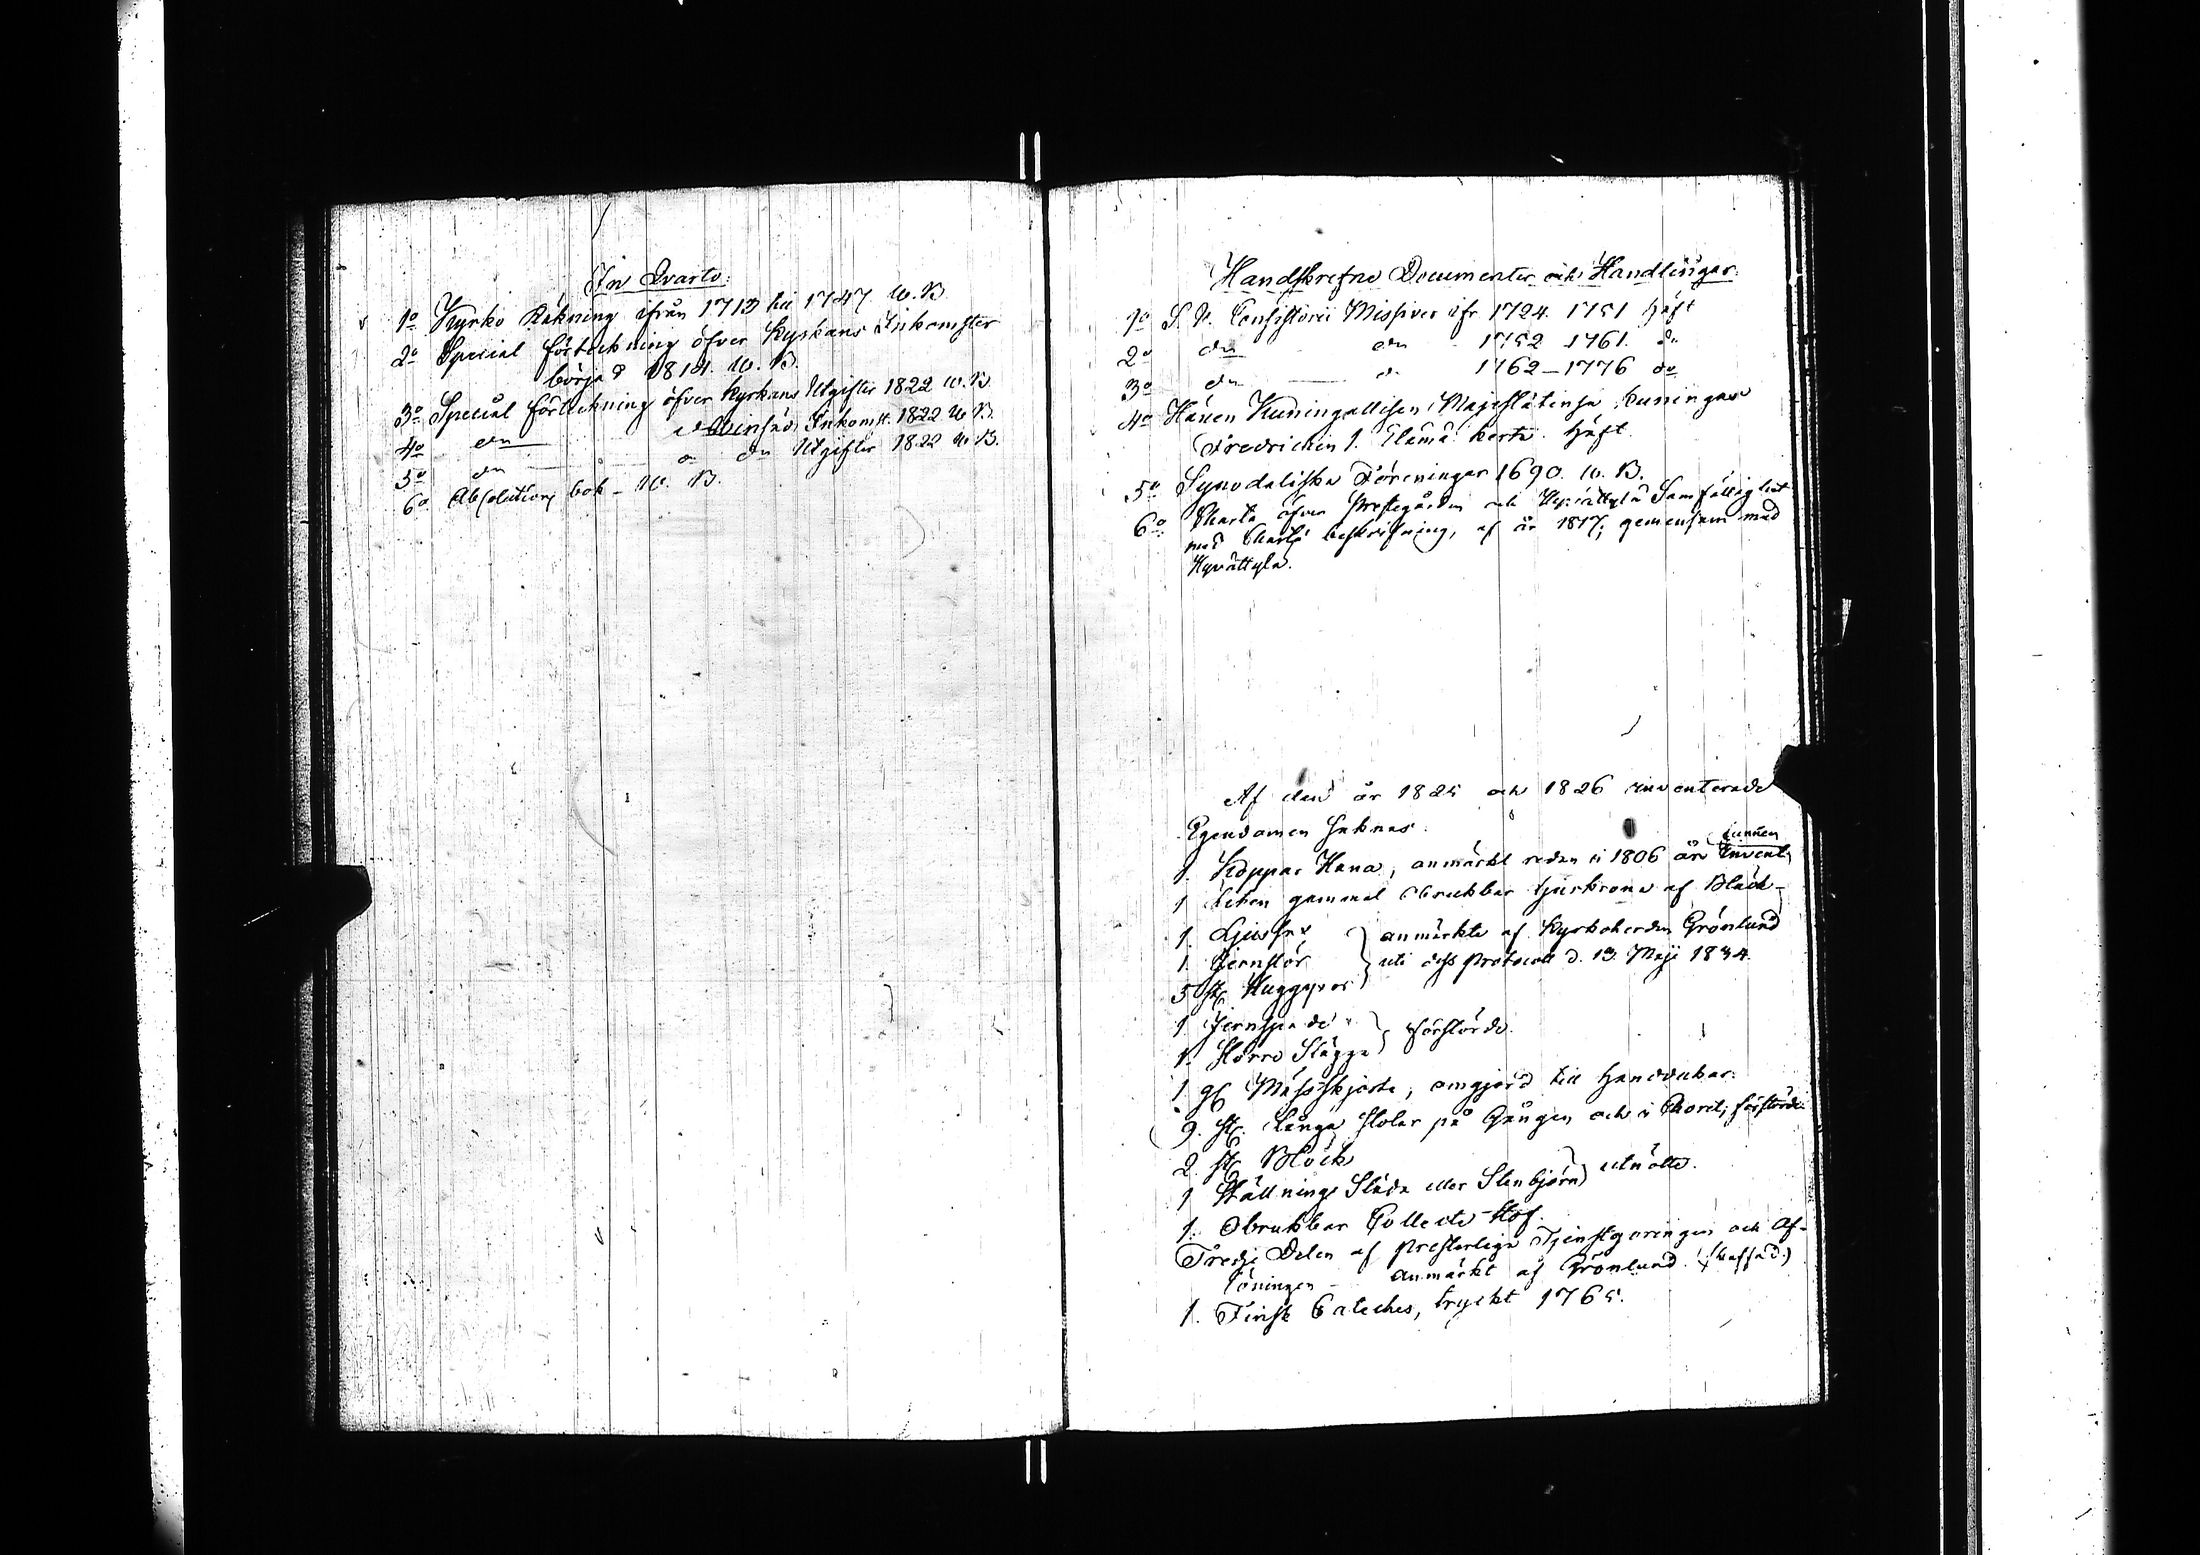 In Qvarto.
1o Kyrko Räkning ifrån 1713 till 1747 W. B
2o Special förteckning öfver Kyrkans Inkomster
börjad 1814. W. B.
3o Special förteckning öfver Kyrkans Utgifter 1822 W. B
4o do Inkomst. 1822 W B.
5o do do Utgifter 1822 W B.
6o Absolutions bok - W. B.
Handskrefne Documenter och Handlingar.
1o S. V. Consistorii Missiver ifr. 1724. 1751 häft
2o do do 1752 1761. do
3o do do 1762-1776 do
4o Hänen Kuningallisen Majestätinsa Cuningas
Fredrichin 1. Elämä kerta. häft.
5o Synodaliska Föreningar 1690. W. B.
6o Charta öfver Prestegården och Samfällighet
med Charte beskrifning, af år 1817, gemensam med
Af den år 1825 och 1826 inventerade
Egendomen saknas.
1. Koppar Kana, anmärkt redan i 1806 års Invent.
1 liten gammal obrukbar ljuskrona af Bläck-
1. Ljussax anmärkte af Kyrkoherden Grönlund
1. Jernstör uti dess Protocoll d. 13. Maji 1834.
5 st.
1 Jernspade förstörde.
1. Större Slägga
1 gl Mässskjorta, omgjord till handdukar.
9. st. långa stolar på Gången och i Choret, förstörde.
2 st. Block
1 Ställnings Släde eller Stenbjörn utnötte.
1. Obrukbar Collecte Håf.
Tredje Delen af Presterliga Tjenstgöringen och Af-
löningen - anmärkt af Grönlund.
1. Finsk Cateches, tryckt 1765.